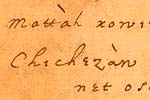 Mattàh xowi
Chichezàn
net os